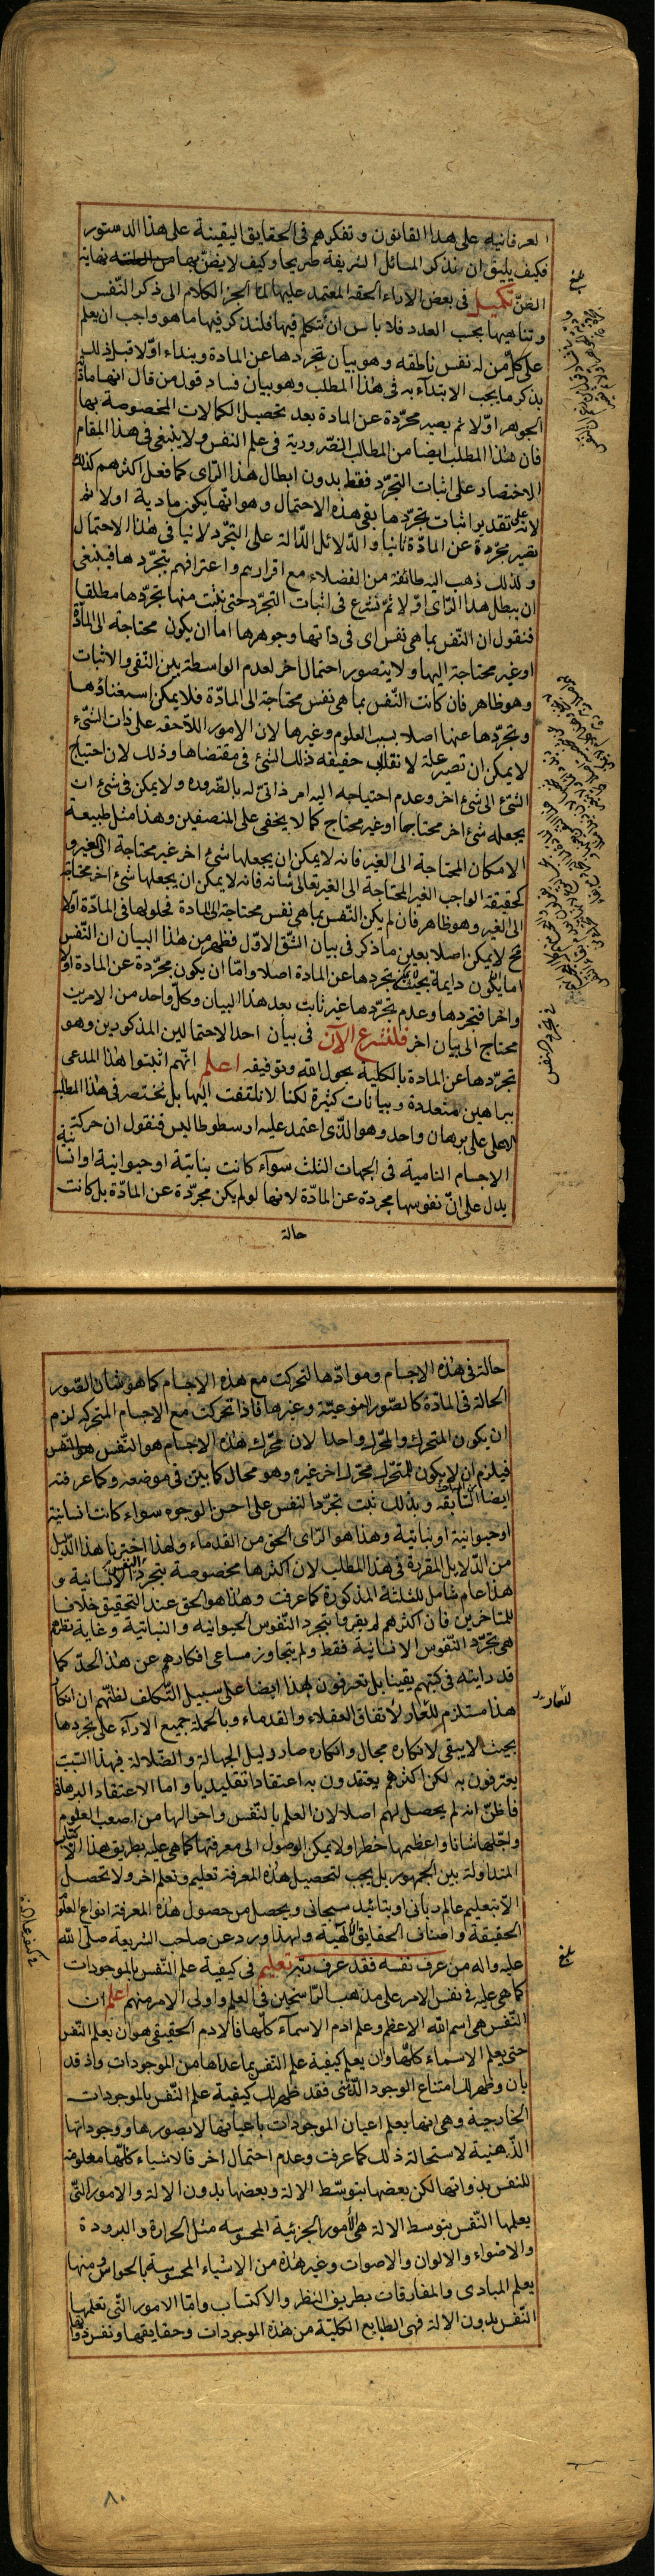 العرفانية على هذا القانون وتفكرهم فى الحقايق اليقينة على هذا الدستور
فكيف يليق ان نذكر المسائل الشريفة صريحا وكيف لا يضن بها نهاية
الضن تكميل فى بعض الاراء الحقه المعتمد عليها لما انجر الكلام الى ذكر النفس
وتناهيها بحسب العدد فلا باس ان نتكلم فيها فلنذكر فيها ما هو واجب ان يعلم
على كل من له نفس ناطقه وهو بيان تجردها عن المادة ونبداء اولا قبل ذلك
بذكر ما يجب الابتداء به فى هذا المطلب وهو بيان فساد قول من قال انها مادة
الجوهر اولا ثم يصير مجردة عن المادة بعد تحصيل الكمالات المخصوصة بها
فان هذا المطلب ايضا من المطالب الضرورية فى علم النفس ولا ينبغى فى هذا المقام
الاختصار على اثبات التجرد فقط بدون ابطال هذا الراى كما فعل اكثرهم كذلك
لانه على تقدير اثبات تجردها بقى هذه الاحتمال وهو انها يكون مادية اولا ثم
تصير مجردة عن المادة ثانيا والدلائل الدالة على التجرد لا ينافى هذا الاحتمال
ولذلك ذهب اليه طائفة من الفضلاء مع اقرارهم واعترافهم بتجردها فينبغى
ان يبطل هذا الراى اولا ثم نشرع فى اثبات التجرد حتى نثبت منها تجردها مطلقا
فنقول ان النفس بما هى نفس اى فى ذاتها وجوهرها اما ان يكون محتاجة الى المادة
او غير محتاجة اليها ولا يتصور احتمال اخر لعدم الواسطة بين النفى والاثبات
وهو ظاهر فان كانت النفس بما هى نفس محتاجة الى المادة فلا يمكن استغناؤها
وتجردها عنها اصلا بسبب العلوم وغيرها لان الامور اللاحقه على ذات الشىء
لا يمكن ان تصير علة لانقلاب حقيقه ذلك الشئ فى مقتضاها وذلك لان احتياج
الشئ الى شئ اخر وعدم احتياجه اليه امر ذاتى له بالضروره ولا يمكن فى شئ ان
يجعله شئ اخر محتاجا او غير محتاج كما لا يخفى على المنصفين وهذا مثل طبيعة
الامكان المحتاجة الى الغير فانه لا يمكن ان يجعلها شئ اخر غير محتاجة الى الغير و
كحقيقه الواجب الغير المحتاجة الى الغير تعالى شانه فانه لا يمكن ان يجعلها شئ اخر محتاجة
الى الغير وهو ظاهر فان لم يكن النفس بما هى نفس محتاجة الى المادة فحلولها فى المادة اولا
مح لا يمكن اصلا بعين ما ذكر فى بيان الشق الاول فظهر من هذا البيان ان النفس
اما يكون دايمة بحيث تجردها عن المادة اصلا واما ان يكون مجردة عن المادة اولا
واخرا فتجردها وعدم تجردها غير ثابت بعد هذا البيان وكل واحد من الامرين
محتاج الى بيان اخر فلنشرع الآن فى بيان احد الاحتمالين المذكورين وهو
تجردها عن المادة بالكلية بحول الله وتوفيقه اعلم انهم اثبتوا هذا المدعى
ببراهين متعددة وبيانات كثيرة لكنا لا نلتفت اليها بل نختصر فى هذا المطلب
الاعلى على برهان واحد وهو الذى اعتمد عليه ارسطوطاليس فنقول ان حركة
الاجسام النامية فى الجهات الثلث سوآء كانت نباتية او حيوانية او انسانية
يدل على ان نفوسها مجردة عن المادة لانها لو لم يكن مجردة عن المادة بل كانت
حالة
حالة فى هذه الاجسام وموادها لتحركت مع هذه الاجسام كما هو شان الصور
الحالة فى المادة كالصور النوعية وغيرها فاذا تحركت مع الاجسام المتحركه لزم
ان يكون المتحرك والمحرك واحدا لان محرك هذه الاجسام هو النفس
فيلزم ان لا يكون للمتحرك محرك اخر غيره وهو محال كما بين فى موضعه وكما عرفته
ايضا السابقة وبذلك ثبت تجرد النفس على احسن الوجوه سواء كانت انسانية
او حيوانية او نباتية وهذا هو الراى الحق من القدماء ولهذا اخترنا هذا الدليل
من الدلايل المقررة فى هذا المطلب لان اكثرها مخصوصة بتجرد النفس الانسانية و
هذا عام شامل للثلثة المذكورة كما عرفت وهذا هو الحق عند التحقيق خلافا
للمتاخرين فان اكثرهم لم يقروا بتجرد النفوس الحيوانيه والنباتية وغاية نظرهم
هى تجرد النفوس الانسانية فقط ولم يتجاوز مساعى افكارهم عن هذا الحد كما
قد رايته فى كتبهم يقينا بل تعرفون بهذا ايضا على سبيل التكلف لظنهم ان انكار
هذا مستلزم للعار لاتفاق العقلاء والقدماء وبالجملة جميع الاراء على تجردها
بحيث لا يبقى لانكاره مجال وانكاره صار دليل الجهالة والضلالة فبهذا السبب
يعترفون به لكن اكثرهم يعتقدون به اعتقادا تقليديا واما الاعتقاد البرهانى
فاظن انه لم يحصل لهم اصلا لان العلم بالنفس واحوالها من اصعب العلوم
واجلها شانا واعظمها خطرا ولا يمكن الوصول الى معرفتها كما هى عليه بطريق هذا
المتداولة بين الجمهور بل يجب لتحصيل هذه المعرفة تعليم وتعلم اخر ولا تحصل
الا بتعليم عالم ربانى او بتائيد سبحانى ويحصل من حصول هذه المعرفة انواع العلوم
الحقيقة واصناف الحقايق الالهية ولهذا ورد عن صاحب الشريعة صلى الله
عليه واله من عرف نفسه فقد عرف ربه تعليم فى كيفية علم النفس بالموجودات
كما هى عليه فى نفس الامر على مذهب الراسخين فى العلم واولى الامر منهم اعلم ان
النفس هى اسم الله الاعظم وعلم ادم الاسمآء كلها فالادم الحقيقى هو ان يعلم النفس
حتى يعلم الاسماء كلها وان يعلم كيفية علم النفس بما عداها من الموجودات واذ قد
بان وظهر لك امتناع الوجود الذهنى فقد ظهر لك كيفية علم النفس بالموجودات
الخارجية وهى انها يعلم اعيان الموجودات باعيانها لا بصورها ووجوداتها
الذهنية لاستحالة ذلك كما عرفت وعدم احتمال اخر فالاشياء كلها معلومة
للنفس بذواتها لكن بعضها بتوسط الالة وبعضها بدون الالة والامور التى
يعلمها النفس بتوسط الالة هى الأمور الجزئية المحسوسه مثل الحرارة والبرودة
والاضواء والالوان والاصوات وغير هذه من الاشياء المحسوسة بالحواس ومنها
يعلم المبادى والمفارقات بطريق النظر والاكتساب واما الامور التى تعلمها
النفس بدون الالة فهى الطبايع الكلية من هذه الموجودات وحقايقها ونفس ذواتها
للعار
بلغ
بلغ
٨٠